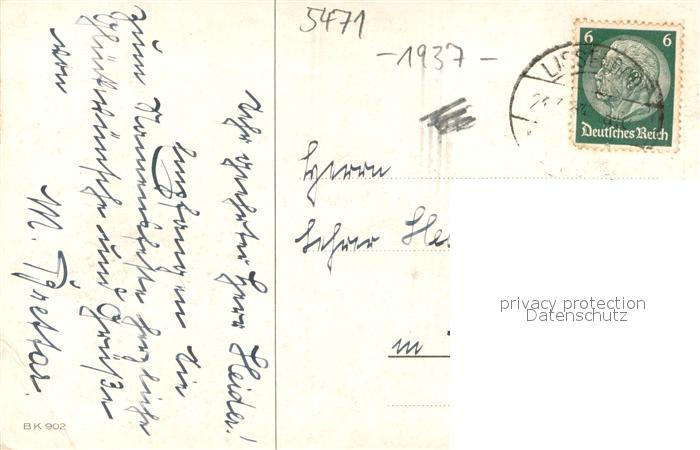 5471
-1937-
6 6
Deutsches Reich
LISSENDORF
Herrn
Lehrer Hei
in
privacy protection
Datenschutz
Sehr geehrter Herr Heider!
Empfangen Sie
zum Namensfeste herzliche
Glückwünsche und Grüße
von
M.
BK 902